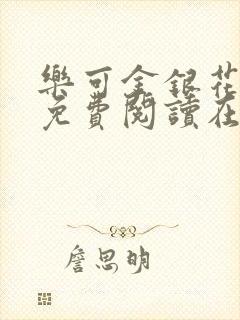 樂可金銀花
免費閱讀在
詹思明